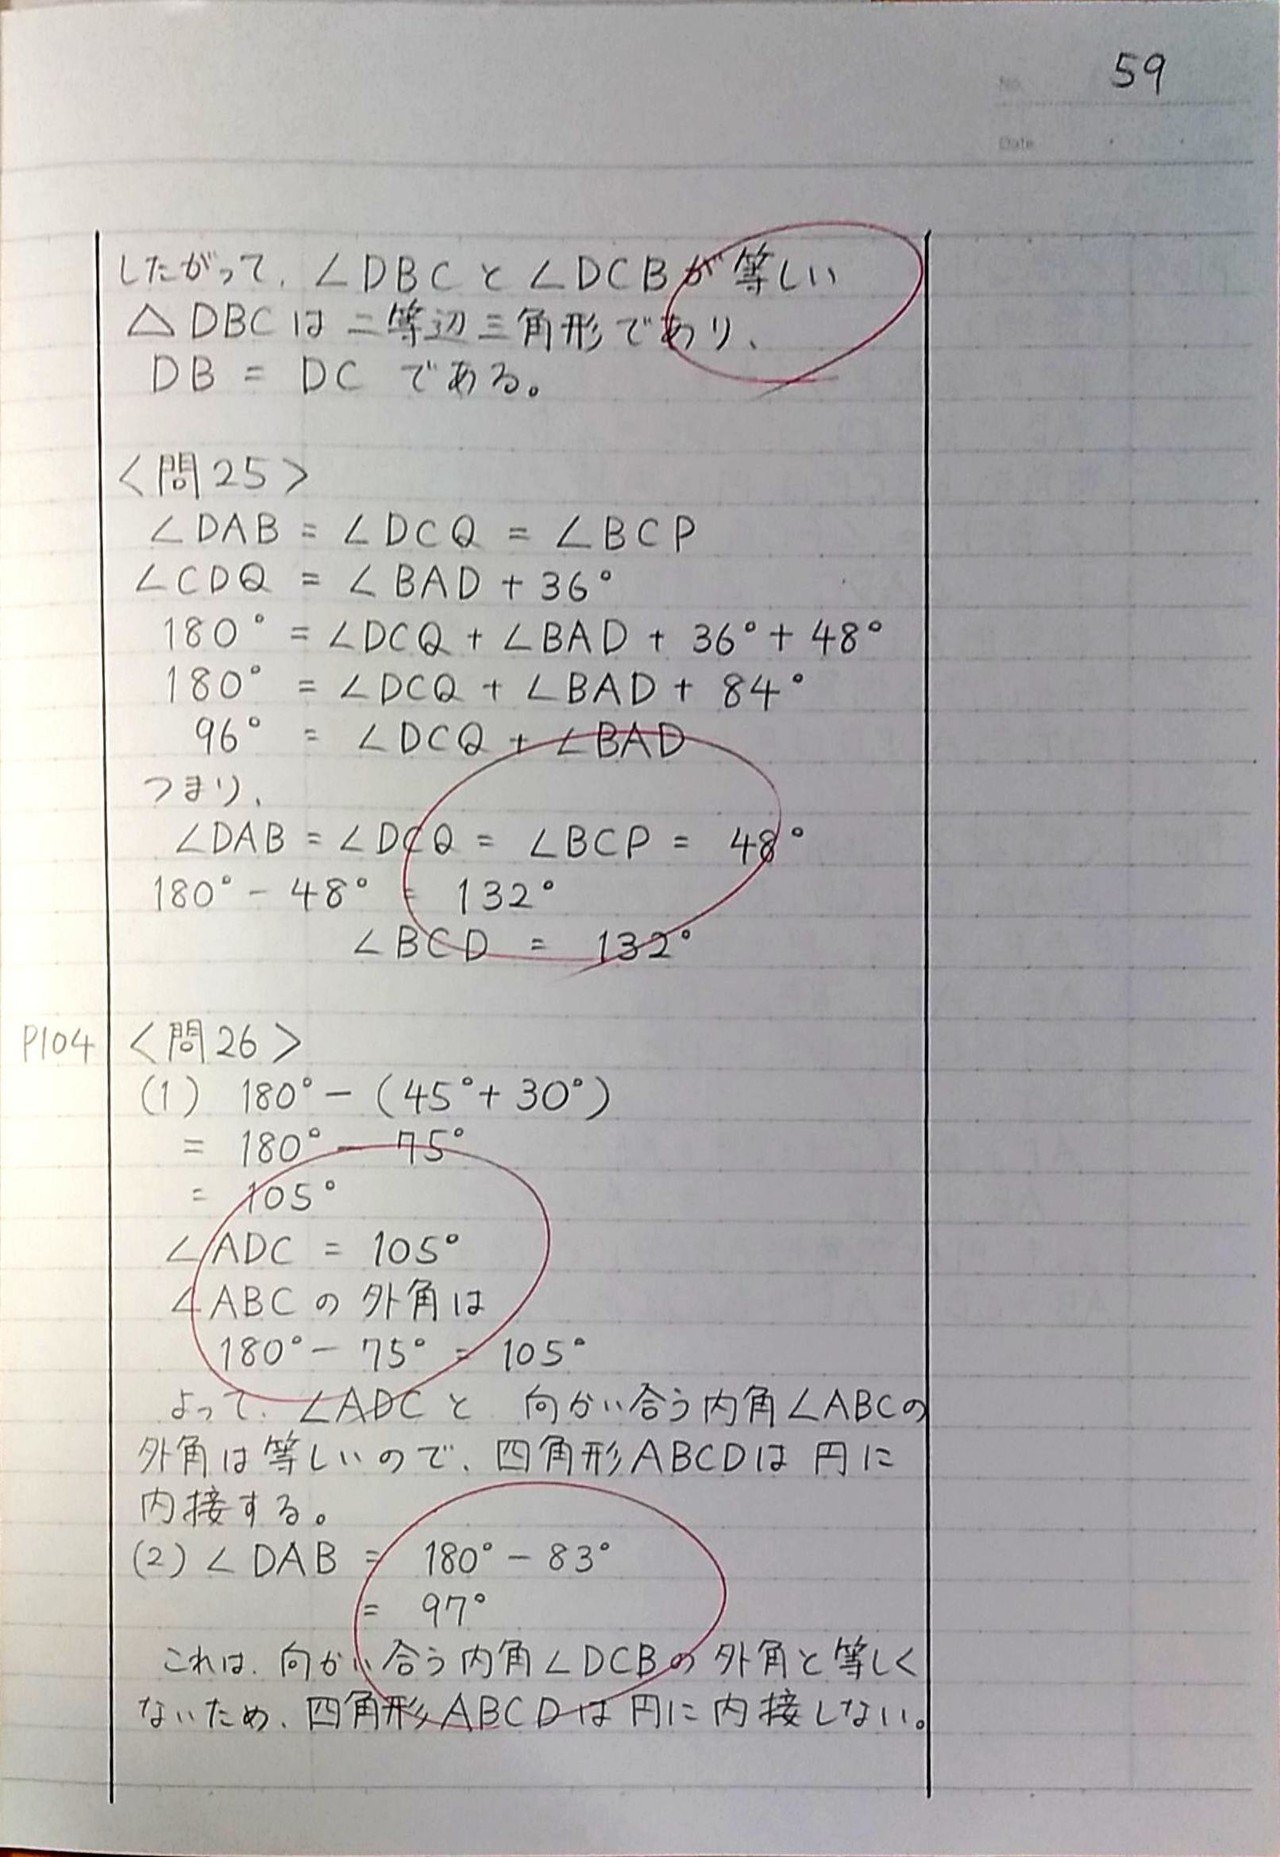 No. 59
Date
したがって、∠DBCと∠DCBが等しい
△DBCは二等辺三角形であり、
DB = DC である。
<問25>
∠DAB = ∠DCQ = ∠BCP
∠CDQ = ∠BAD + 36°
180° = ∠DCQ + ∠BAD + 36° + 48°
180° = ∠DCQ + ∠BAD + 84°
96° = ∠DCQ + ∠BAD
つまり、
∠DAB = ∠DCQ = ∠BCP = 48°
180° - 48° = 132°
∠BCD = 132°
P104 <問26>
(1) 180° - (45° + 30°)
= 180° - 75°
= 105°
∠ADC = 105°
∠ABCの外角は
180° - 75° = 105°
よって、∠ADCと 向かい合う内角∠ABCの
外角は等しいので、四角形ABCDは円に
内接する。
(2) ∠DAB = 180° - 83°
= 97°
これは、向かい合う内角∠DCBの外角と等しく
ないため、四角形ABCDは円に内接しない。